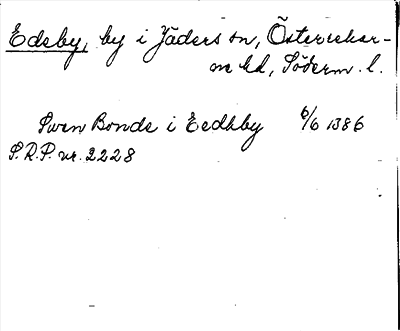 Edeby, by i Jäders sn, Österrekar-
ne hd, Söderm. l.
Swen Bonde i Eedhby 6/6 1386
S.R.P. nr. 2228